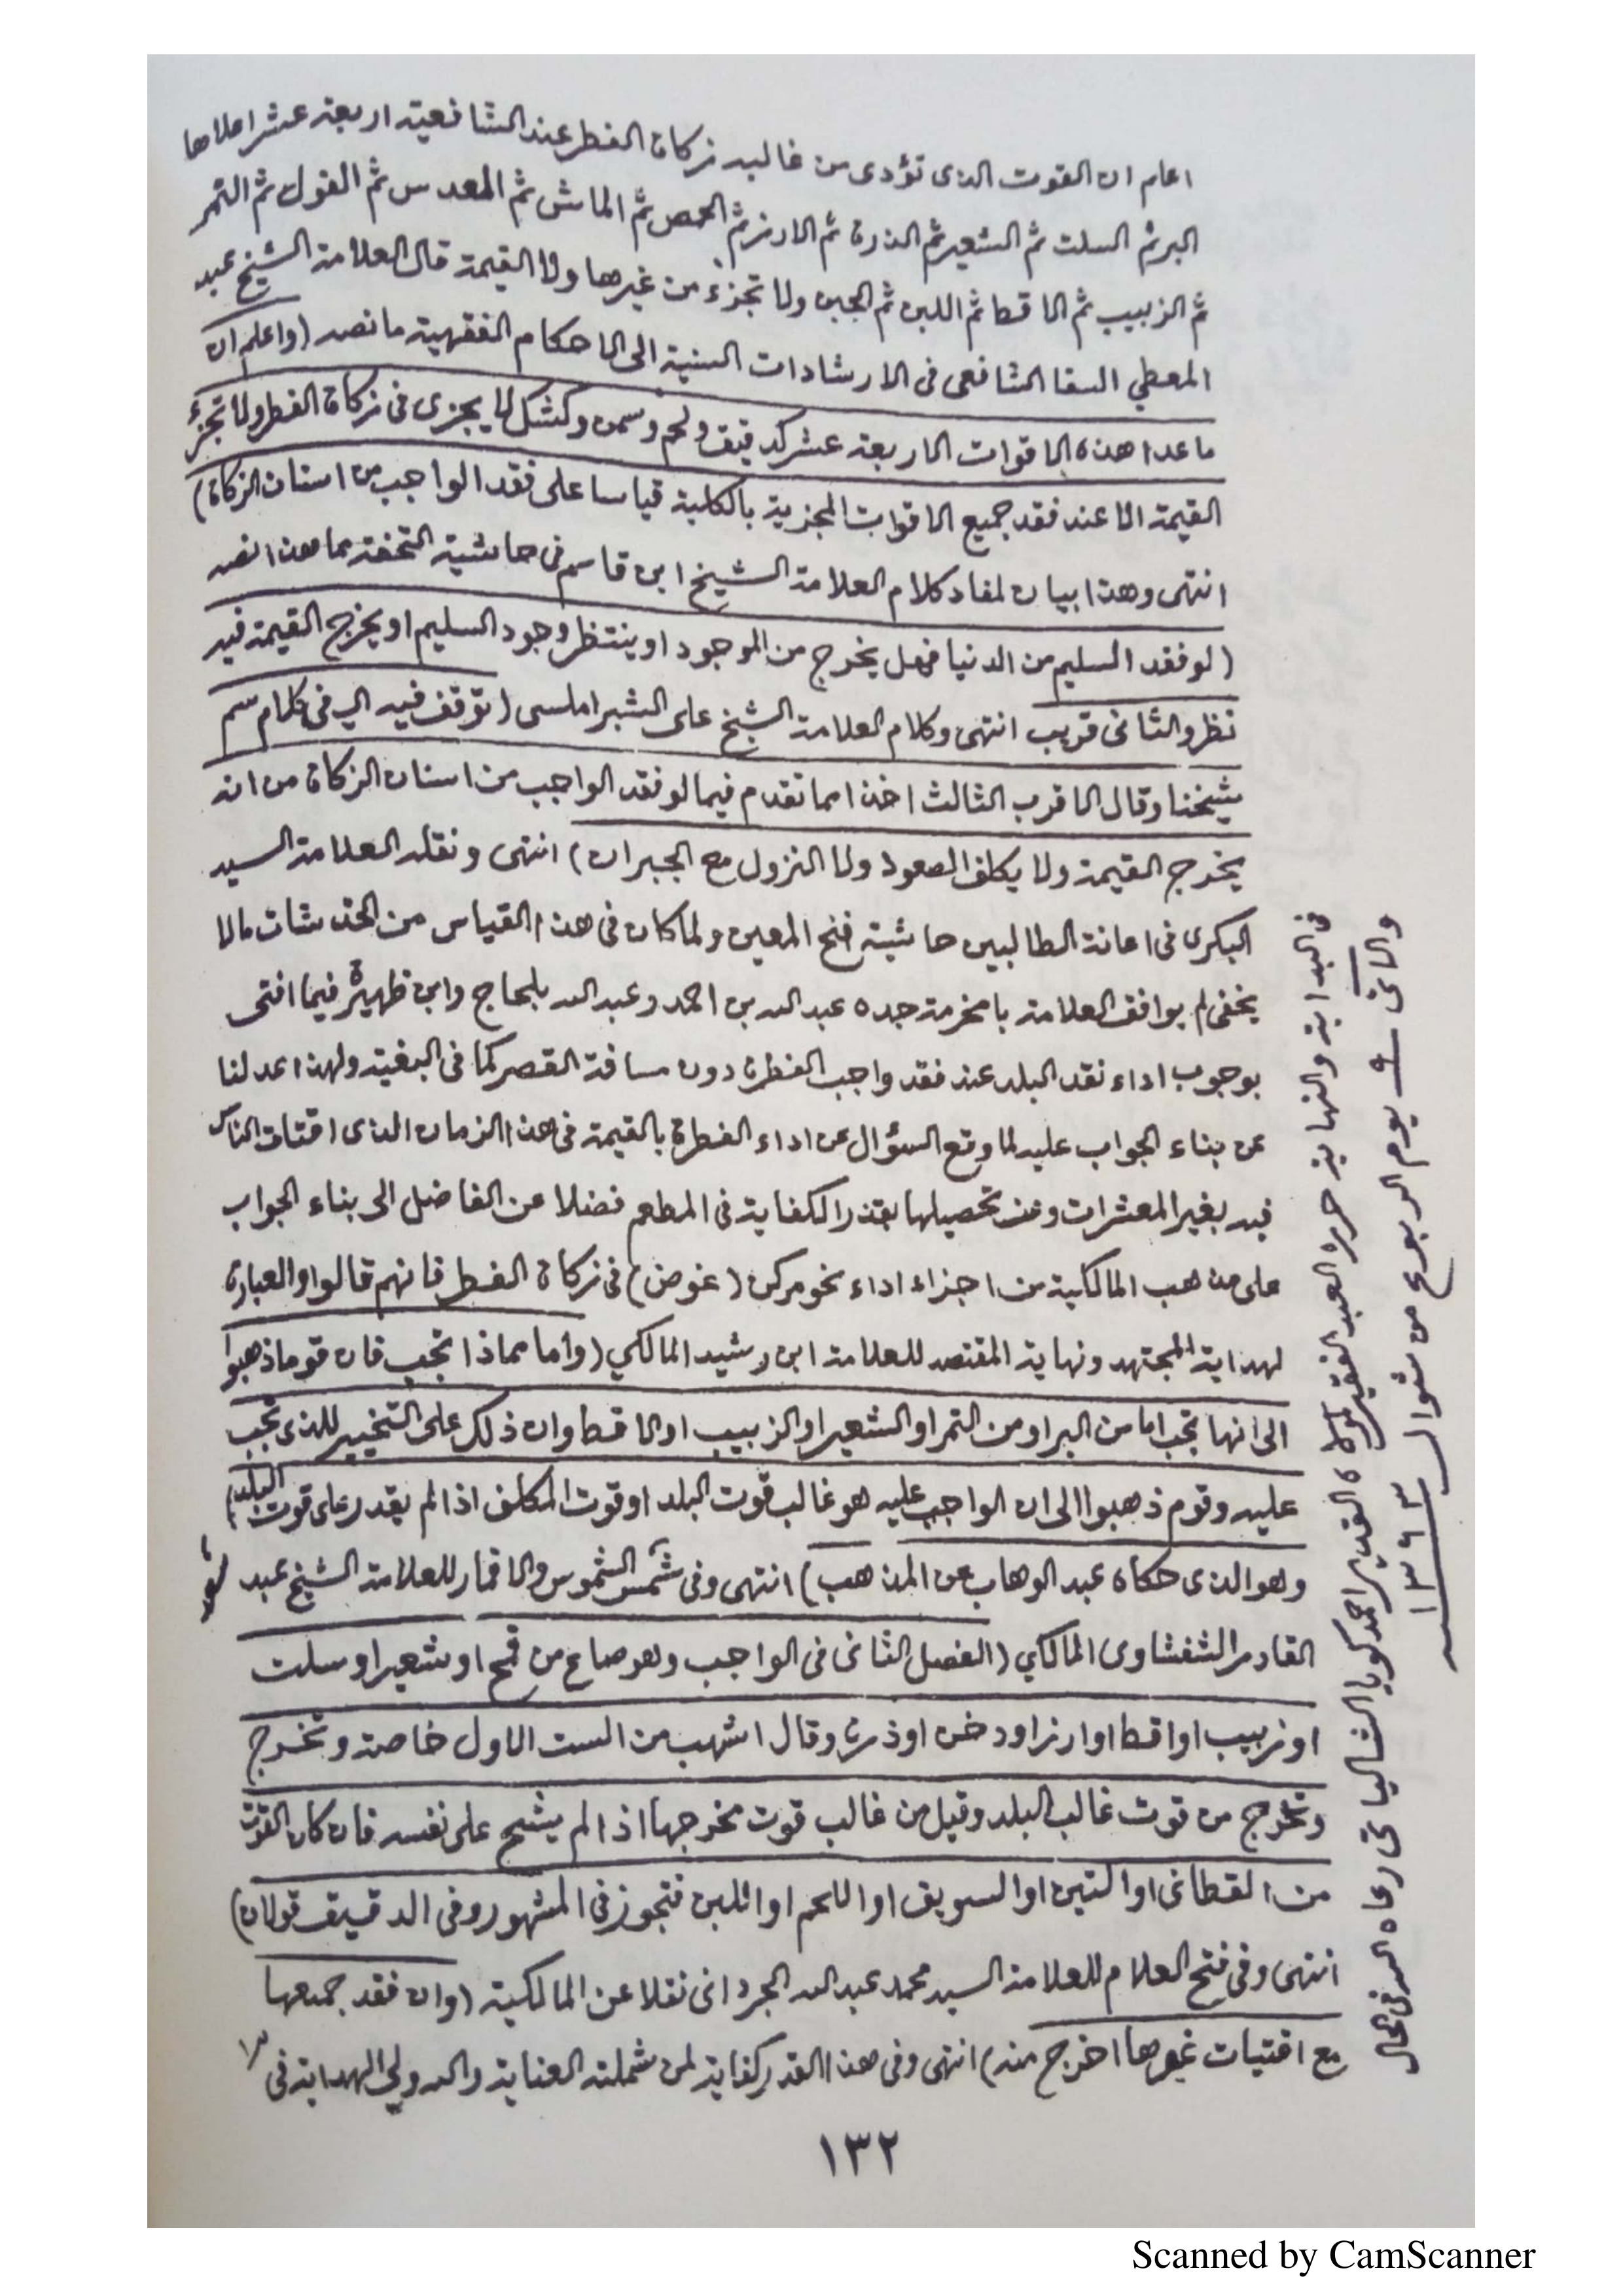 اعلم ان القوت الذى تؤدى من غالبه زكاة الفطر عند الشافعية اربعة عشر اعلاها
البر ثم السلت ثم الشعير ثم الذرة ثم الارز ثم الحمص ثم الماش ثم العدس ثم الفول ثم التمر
ثم الزبيب ثم الاقط ثم اللبن ثم الجبن ولا تجزئ من غيرها ولا القيمة قال العلامة الشيخ عبد
المعطي السقا الشافعى فى الارشادات السنية الى الاحكام الفقهية ما نصه (واعلم ان
ما عدا هذه الاقوات الاربعة عشر كدقيق ولحم وسمن وكشك لا يجزى فى زكاة الفطر ولا تجزئ
القيمة الا عند فقد جميع الاقوات المجزية بالكلية قياسا على فقد الواجب من اسنان الزكاة)
انتهى وهذا بيان لمفاد كلام العلامة الشيخ ابن قاسم فى حاشية التحفة مما هذا نصه
(لو فقد السليم من الدنيا فهل يخرج من الموجود او ينتظر وجود السليم او يخرج القيمة فيه
نظر والثانى قريب انتهى وكلام العلامة الشيخ على الشبراملسى (توقف فيه اي فى كلام سم
شيخنا وقال الاقرب الثالث اخذا مما تقدم فيما لو فقد الواجب من اسنان الزكاة من انه
يخرج القيمة ولا يكلف الصعود ولا النزول مع الجبران) انتهى ونقله العلامة السيد
البكرى فى اعانة الطالبين حاشية فتح المعين ولما كان فى هذا القياس من الخدشات مالا
يخفى لم يوافق العلامة بامخرمة جده عبد الله بن احمد وعبد الله بلحاج وابن ظهيرة فيما افتى
بوجوب اداء نقد البلد عند فقد واجب الفطرة دون مسافة القصر كما فى البغية ولهذا عدلنا
عن بناء الجواب عليه لما وقع السؤال عن اداء الفطرة بالقيمة فى هذا الزمان الذى اقتات الناس
فيه بغير المعشرات وعز تحصيلها بقدر الكفاية فى المطعم فضلا عن الفاضل الى بناء الجواب
على مذهب المالكية من اجزاء اداء نحو مركن (غوض) فى زكاة الفطر فانهم قالوا والعبارة
لبداية المجتهد ونهاية المقتصد للعلامة ابن رشيد المالكي (واما مماذا تجب فان قوما ذهبوا
الى انها تجب اما من البر او من التمر او الشعير او الزبيب او الاقط وان ذلك على التخيير للذى تجب
عليه وقوم ذهبوا الى ان الواجب عليه هو غالب قوت البلد او قوت المكلف اذا لم يقدر على قوت البلد
وهو الذى حكاه عبد الوهاب عن المذهب) انتهى وفى شمس الشموس والاقمار للعلامة الشيخ عبد
القادر الشفشاوى المالكي (الفصل الثانى فى الواجب وهو صاع من قمح او شعير او سلت
او زبيب او اقط او ارز او دخن او ذرة وقال اشهب من الست الاول خاصة وتخرج
وتخرج من قوت غالب البلد وقيل من غالب قوت مخرجها اذا لم يشح على نفسه فان كان القوت
من القطانى او التين او السويق او اللحم او اللبن فتجوز فى المشهور وفى الدقيق قولان)
انتهى وفى فتح العلام للعلامة السيد محمد عبد الله الجردانى نقلا عن المالكية (وان فقد جميعها
مع اقتيات غيرها اخرج منه) انتهى وفى هذا القدر كفاية لمن شملته العناية والله ولي الهداية فى
فى البداية والنهاية حرره العبد الفقير لمولاه القدير احمد كويا الشالياتى رعاه الله فى الحال
والاتى ٩ يوم الربوع من شوال ١٣٦٣
١٣٢
Scanned by CamScanner